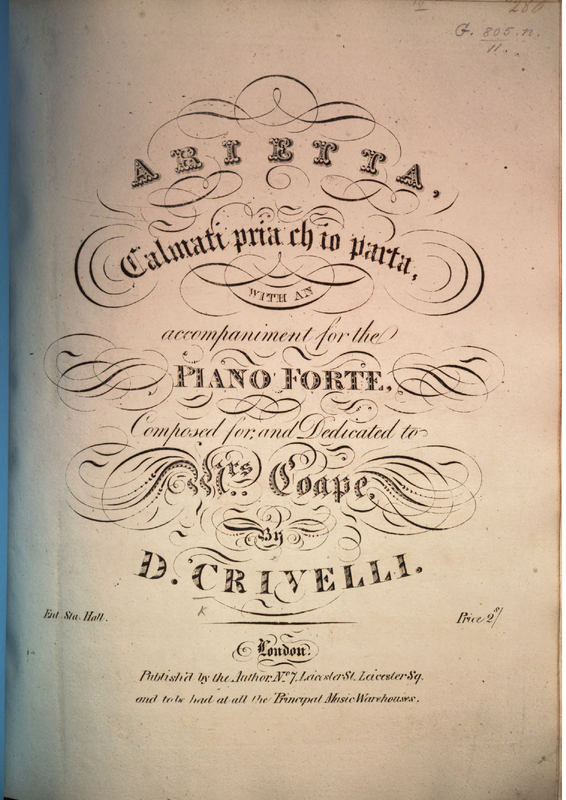 280
G. 805.n.
11.
ARIETTA,
Calmati pria ch io parta,
WITH AN
accompaniment for the
PIANO FORTE,
Composed for, and Dedicated to
Mrs Coape,
By
D. CRIVELLI.
K
Ent. Sta. Hall.
Price 2s/
London.
Publish'd by the Author, No. 7, Leicester St. Leicester Sq.
and to be had at all the Principal Music Warehouses.